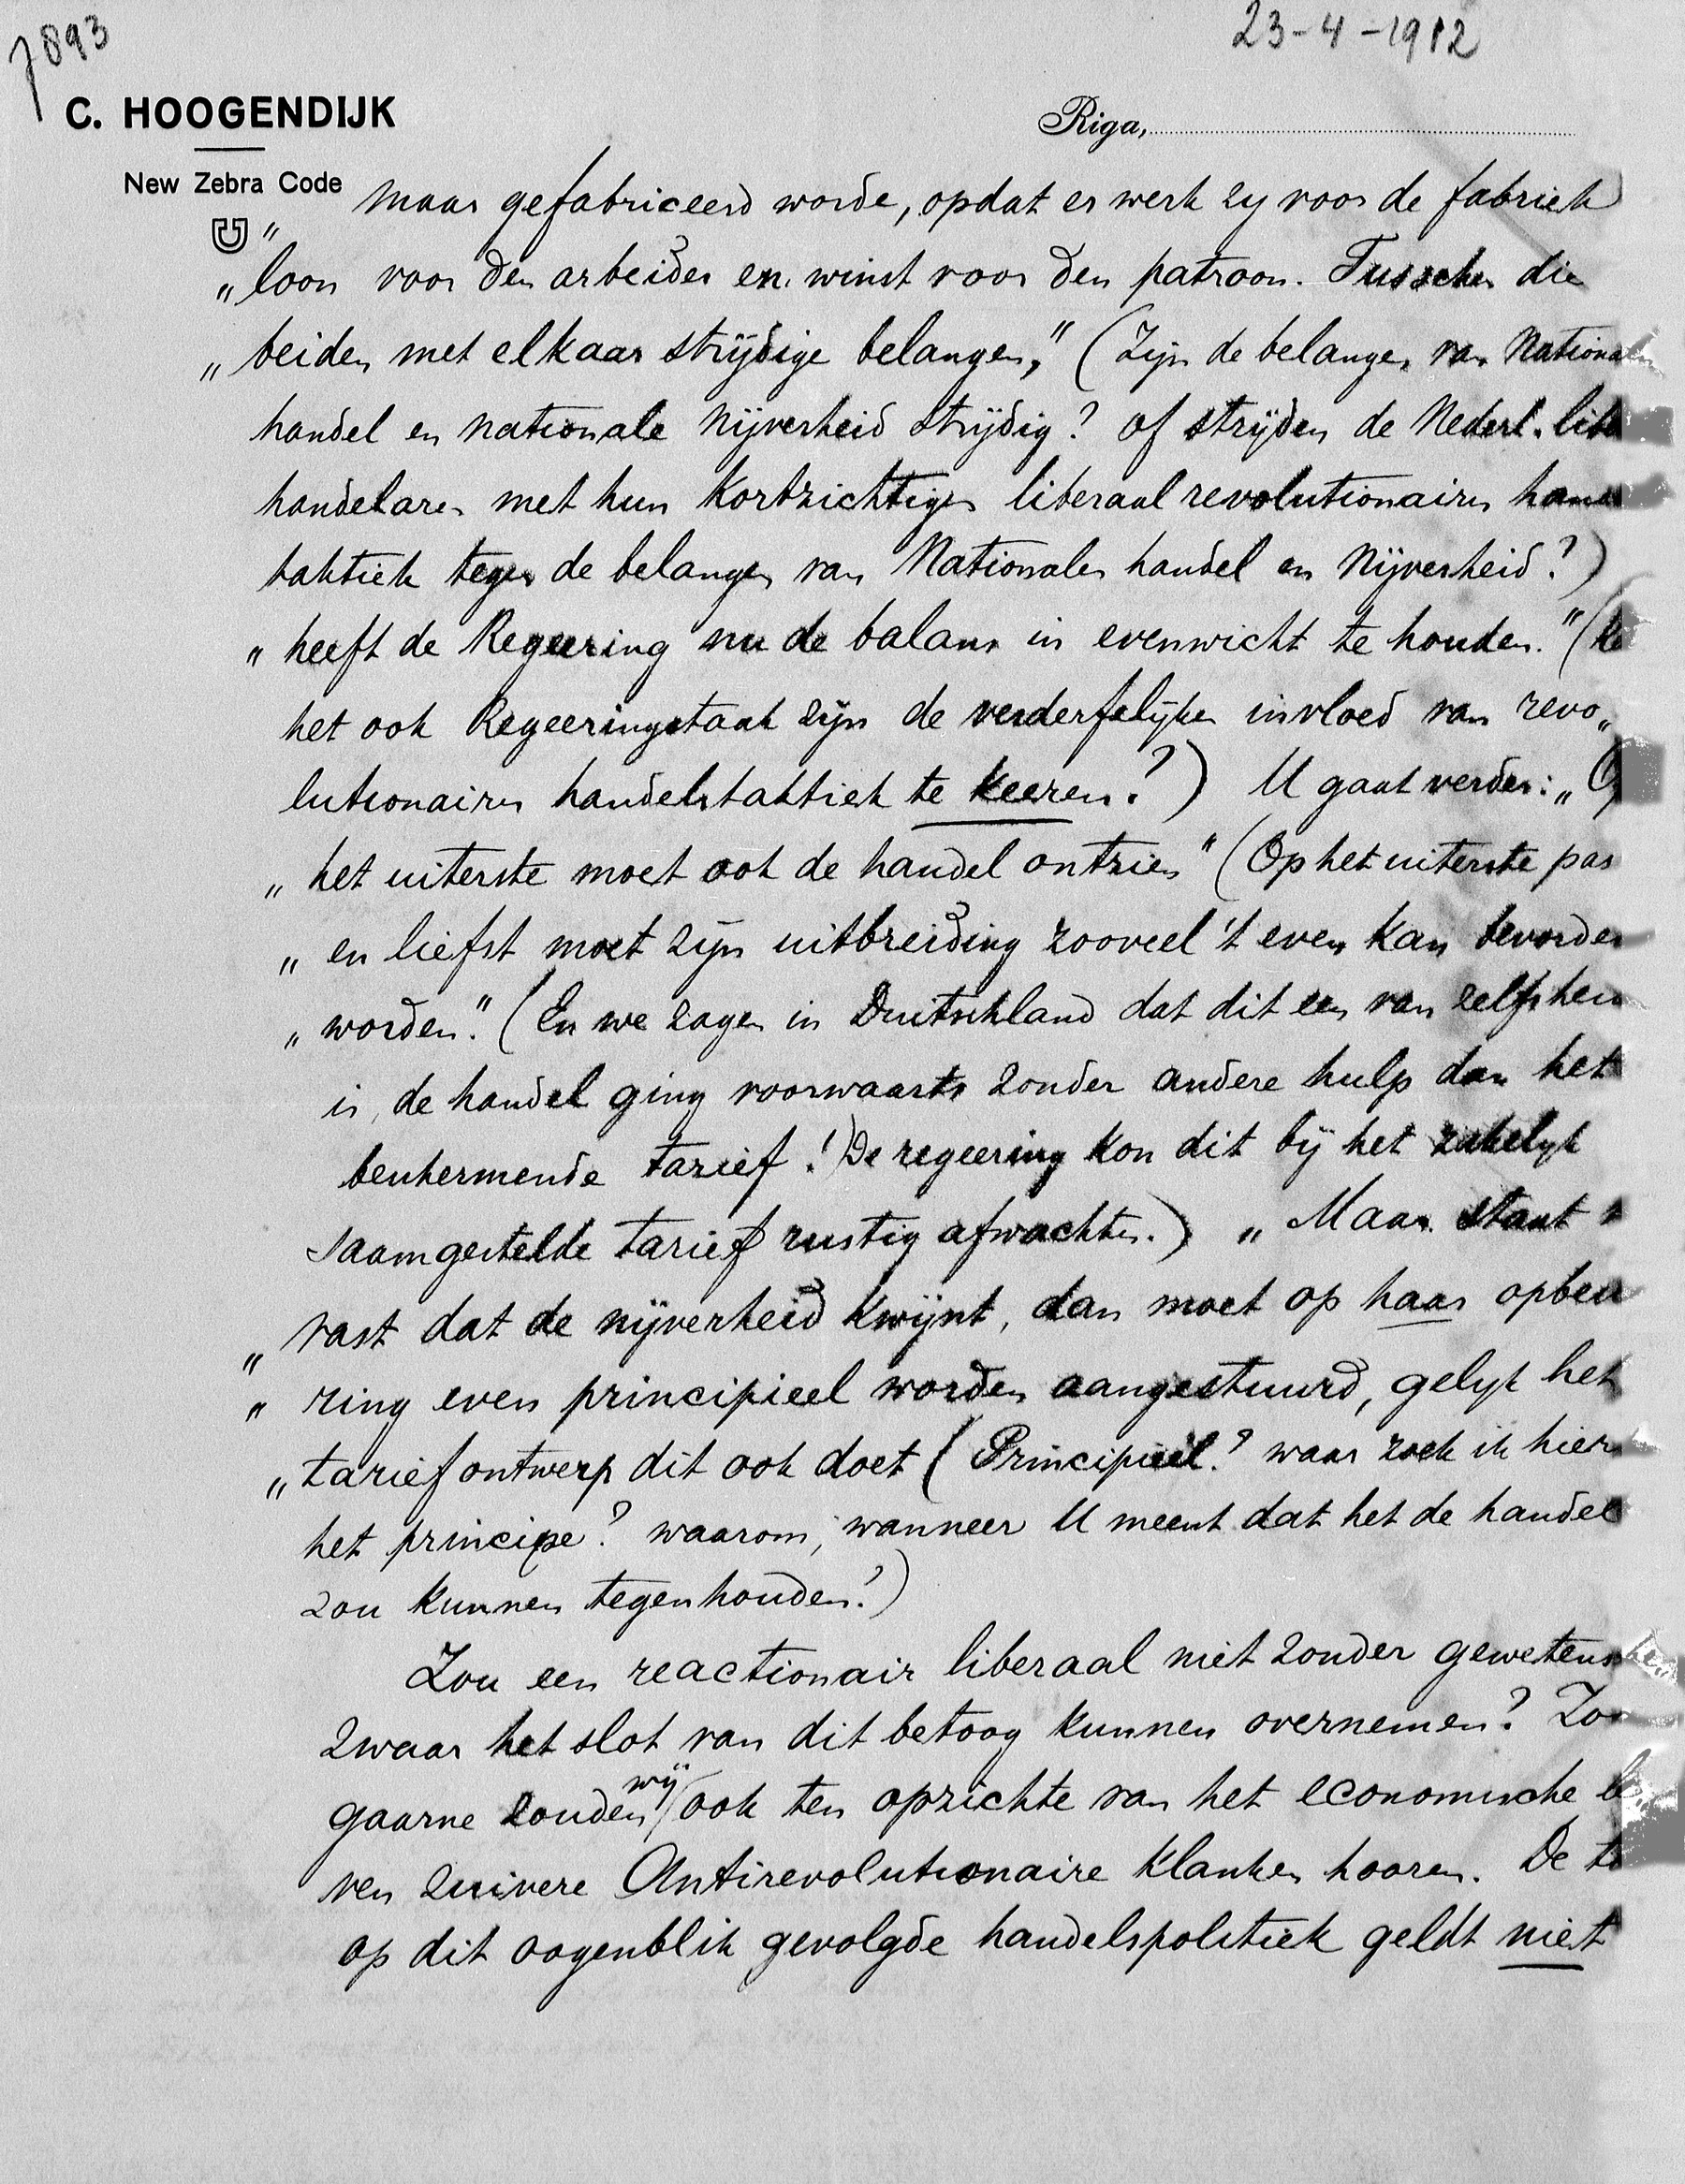 7893
23-4-1912
C. HOOGENDIJK
Riga,
New Zebra Code
„ maar gefabriceerd worde, opdat er werk zy voor de fabriek
„ loon voor den arbeider en winst voor den patroon. Tusschen die
„ beiden met elkaar strijdige belangen," (Zijn de belangen van Nationalen
handel en nationale Nijverheid strijdig? of strijden de Nederl. lib
handelaren met hun kortzichtigen liberaal revolutionairen han
taktiek tegen de belangen van Nationalen handel en Nijverheid?)
„ heeft de Regeering nu de balans in evenwicht te houden." (
het ook Regeeringstaak zijn de verderfelijken invloed van revo„
lutionairen handelstaktiek te keeren?) U gaat verder: „
„ het uiterste moet ook de handel ontzien" (Op het uiterste pas
„ en liefst moet zijn uitbreiding zooveel 't even kan bevorder
„ worden." (En we zagen in Duitschland dat dit een van zelfshei
is, de handel ging voorwaarts zonder andere hulp dan het
beschermende tarief! De regeering kon dit bij het zakelijk
saamgestelde tarief rustig afwachten.) „ Maar staat
„ vast dat de nijverheid kwijnt, dan moet op haar opbeu
„ ring even principieel worden aangestuurd, gelijk het
„ tariefontwerp dit ook doet (Principieel? waar zoek ik hier
het principe? waarom, wanneer U meent dat het de handel
zou kunnen tegenhouden?)
Zou een reactionair liberaal niet zonder gewetens
zwaar het slot van dit betoog kunnen overnemen? Zoo
gaarne zouden wij ook ten opzichte van het economische le
ven zuivere Antirevolutionaire klanken hooren. De
op dit oogenblik gevolgde handelspolitiek geldt niet